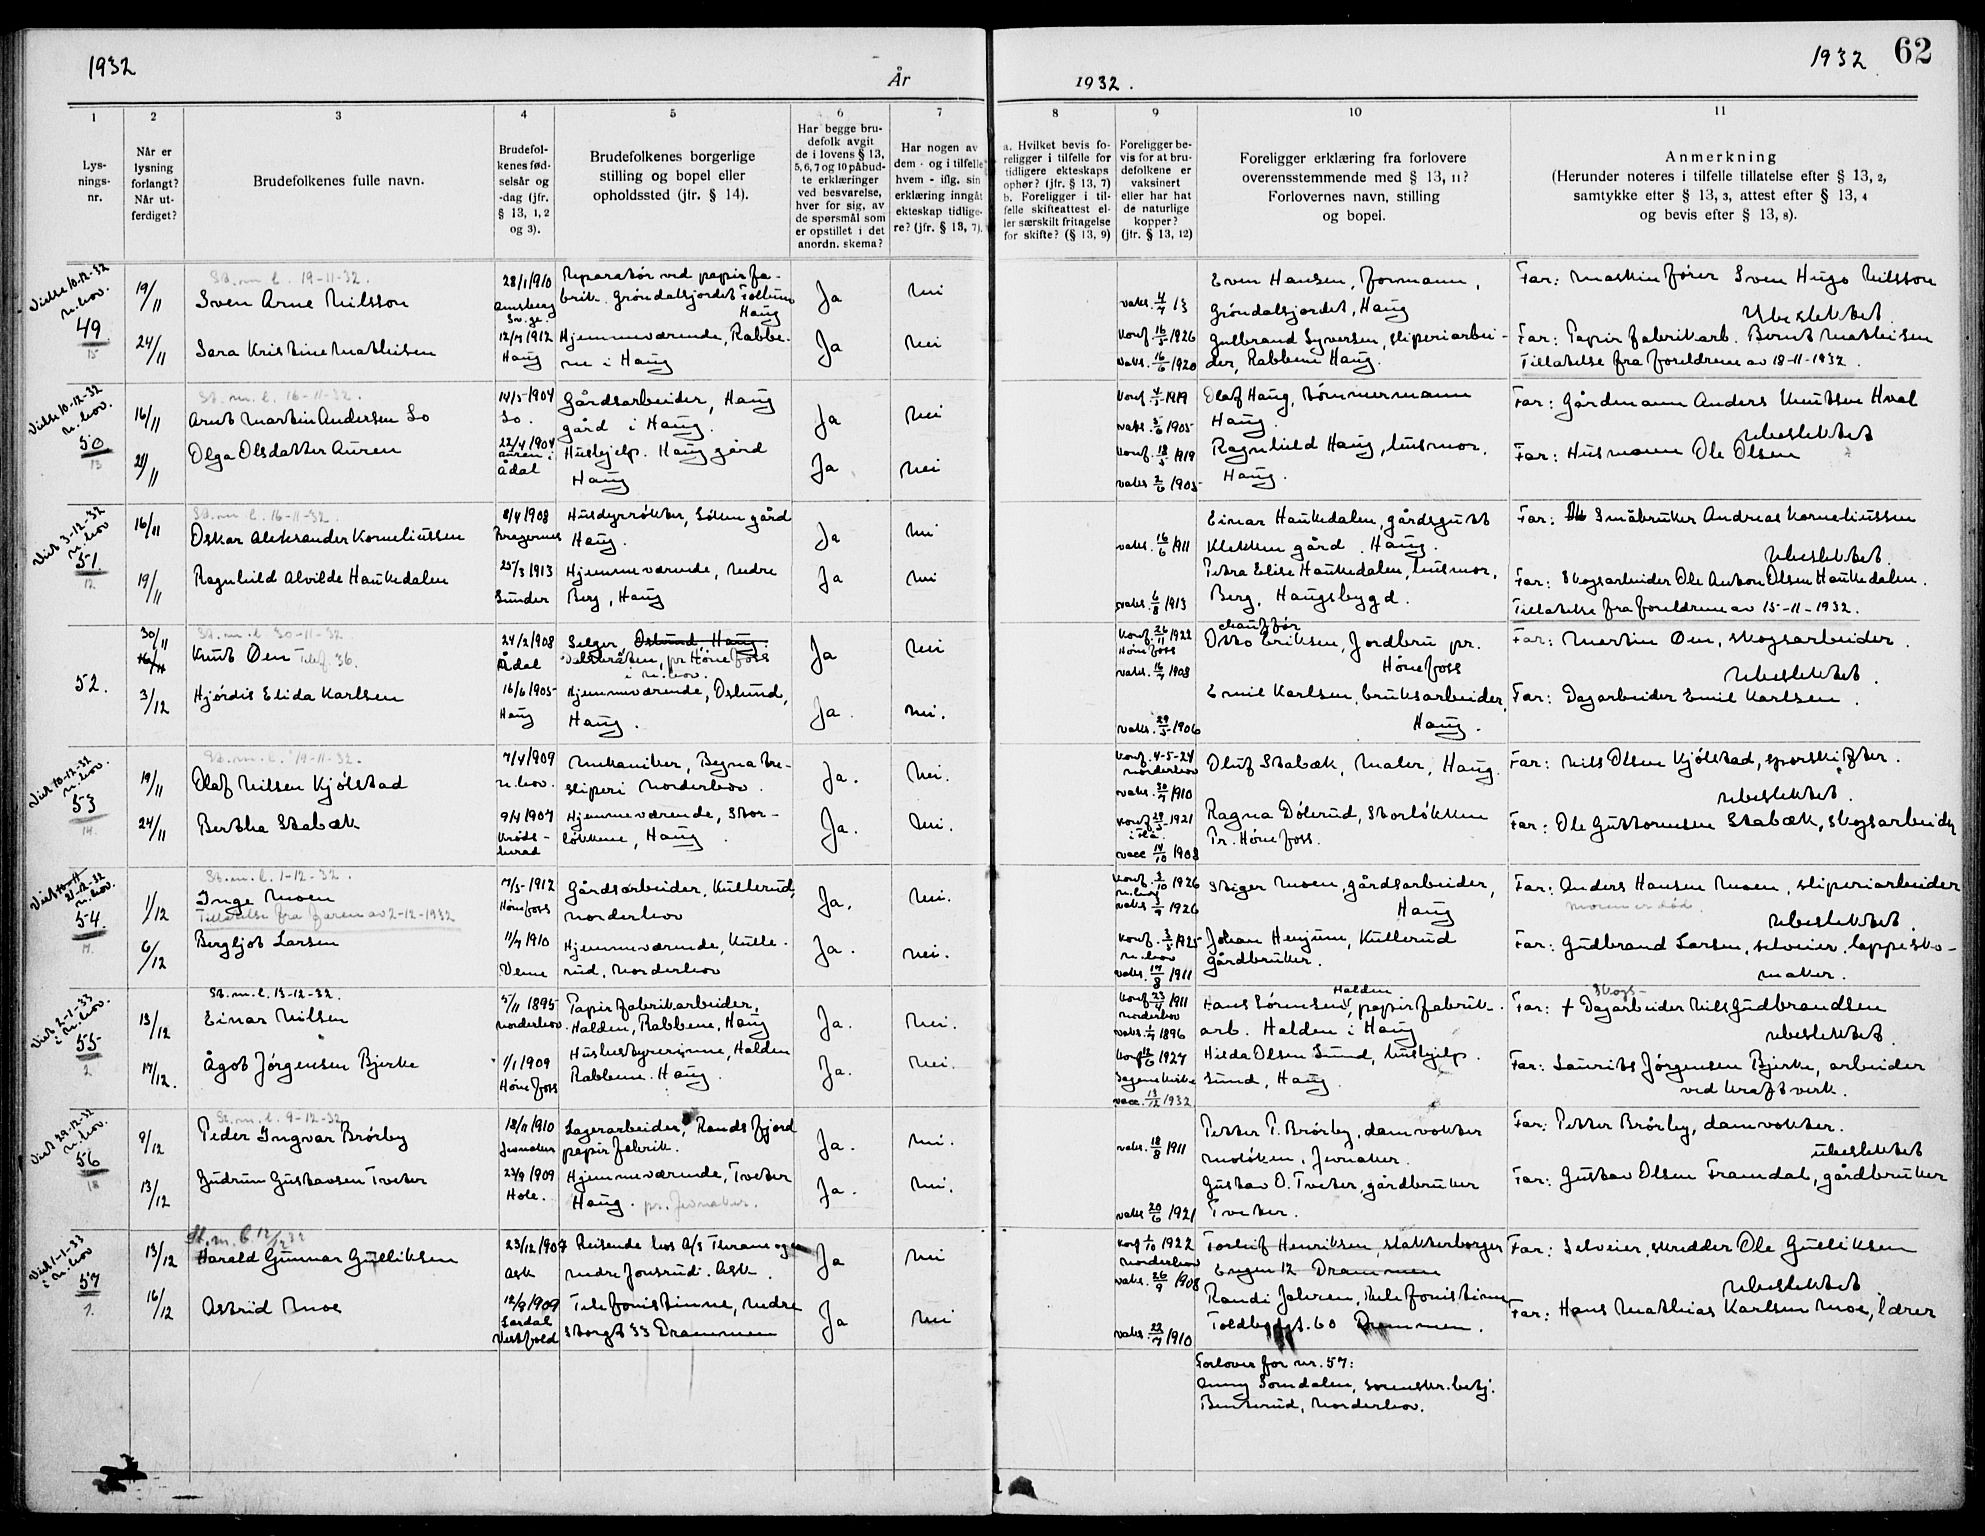 1932
År
1932.
1932
62
1
2
3
4
5
6
7
8
9
10
11
Lys-
nings-
nr.
Når er
lysning
forlangt?
Når ut-
ferdiget?
Brudefolkenes fulle navn.
Brudefol-
kenes fød-
selsår og
-dag (jfr.
§ 13, 1, 2
og 3).
Brudefolkenes borgerlige
stilling og bopel eller
opholdssted (jfr. § 14).
Har begge bru-
defolk avgit
de i lovens § 13,
5, 6, 7 og 10 påbud-
te erklæringer
ved besvarelse,
hver for sig, av
de spørsmål som
er opstillet i det
anordn. skema?
Har nogen av
dem - og i tilfelle
hvem - iflg. sin
erklæring inngåt
ekteskap tidlige-
re? (jfr. § 13, 7).
a. Hvilket bevis fo-
religger i tilfelle for
tidligere ekteskaps
ophør? (jfr. § 13, 7)
b. Foreligger i til-
felle skifteattest el-
ler særskilt fritagelse
for skifte? (§ 13, 9)
Foreligger be-
vis for at bru-
defolkene er
vaksinert
eller har hat
de naturlige
kopper?
(jfr. § 13, 12)
Foreligger erklæring fra forlovere
overensstemmende med § 13, 11?
Forlovernes navn, stilling
og bopel.
Anmerkning
(Herunder noteres i tilfelle tillatelse efter § 13, 2,
samtykke efter § 13, 3, attest efter § 13, 4
og bevis efter § 13, 8).
Vielse 10-12-32
n.hov.
49
15
19/11
St. m. l. 19-11-32.
Sven Arne Nilsson
28/1 1910
Reparatør ved papirfa-
brik. Grøndalsjordet Follum
Haug
Ja
Nei
vaks. 4/7 13
Even Hansen, formann,
Grøndalsjordet, Haug
Far: Maskinfører Sven Hugo Nilsson
Ubeslektet.
24/11
Sara Kristine Mathisen
12/7 1912
Haug
Hjemmeværende, Rabbe-
ne i Haug
Ja
Nei
Konf. 16/5 1926
vaks. 16/6 1920
Gulbrand Syversen, sliperiarbei-
der, Rabbene Haug.
Far: Papirfabrikarb. Bernt Mathisen
Tillatelse fra foreldrene av 18-11-1932.
Vielse 10-12-32
n.hov.
50
13
16/11
St. m. l. 16-11-32.
Arnt Martin Andersen Lo
14/3-1904
Lo.
Gårdsarbeider, Haug
gård i Haug.
Ja
Nei
Konf. 4/5 1919
vaks. 5/6 1905
Olaf Haug, tømmermann
Haug.
Far: Gårdmann Anders Knutsen Hval
Ubeslektet
21/11
Olga Olsdatter Auren
22/4 1904
Auren i
Ådal
Hushjelp. Haug gård
Haug
Ja
Nei
Konf. 18/5 1919
vaks. 2/6 1905
Ragnhild Haug, husmor,
Haug.
Far: Husmann Ole Olsen
Viet 3-12-32
n.hov
51.
12
16/11
St. m. l. 16-11-32.
Oskar Aleksander Korneliussen
8/4 1908
Bragernes
Husdyrrøkter, Løken gård
Haug.
Ja
Nei
vaks. 16/6 1911
Einar Haukedalen, gårdsgutt
Klekken gård. Haug.
Far: Småbruker Andreas Korneliussen
Ubeslektet.
19/11
Ragnhild Alvilde Haukedalen
25/3 1913
Lunder
Hjemmeværende, Nedre
Berg, Haug
Ja
Nei
vaks. 6/8 1913
Petra Elise Haukedalen, husmor,
Berg, Haugsbygd.
Far: Skogsarbeider Ole Anton Olsen Haukedalen.
Tillatelse fra foreldrene av 15-11-1932.
52.
30/11
16/11
St. m. l. 30-11-32.
Knut Øen Telef. 36.
24/2 1908
Ådal
Selger, Oslund, Haug.
Velteråsen, pr. Hønefoss
i n.hov.
Ja
Nei
Konf. 26/11 1922
Hønefoss
vaks. 16/7 1908
chauffør
Otto Eriksen, Jordbru pr.
Hønefoss
Far: Martin Øen, skogsarbeider.
Ubeslektet.
3/12
Hjørdis Elida Karlsen
16/6 1905
Haug
Hjemmeværende, Oslund,
Haug.
Ja.
Nei.
vaks. 29/5 1906
Emil Karlsen, bruksarbeider,
Haug.
Far: Dagarbeider Emil Karlsen.
Viet 10-12-32
n.hov.
53
14.
19/11
St. m. l. 19-11-32.
Olaf Nilsen Kjølstad
7/4 1909
n.hov.
Mekaniker, Begna tre-
sliperi Norderhov.
Ja.
Nei.
Konf. 4-5-24
Norderhov
vaks. 30/7 1910
Oluf Stabæk, maler, Haug.
Far: Nils Olsen Kjølstad, sporskifter.
Ubeslektet.
24/11
Bertha Stabæk
9/4 1907
Krøds-
herad
Hjemmeværende, Stor-
løkkene, Haug.
Ja.
Nei.
Konf. 28/5 1921
i Flå.
vacc 14/10 1908
Ragna Dølerud, Storløkken
Pr. Hønefoss.
Far: Ole Guttormsen Stabæk, skogsarbeider
21-12-32
n.hov.
54.
17.
1/12
St. m. l. 1-12-32.
Inge Moen
Tillatelse fra faren av 2-12-1932
7/3-1912
Hønefoss
Gårdsarbeider, Kullerud,
Norderhov
Ja.
Nei.
Konf. 3/10 1926
n.hov
vaks 3/9 1926
Steiger Moen, gårdsarbeider,
Haug
Far: Anders Hansen Moen, sliperiarbeider
Moren er død.
Ubeslektet.
6/12
Bergljot Larsen
11/7 1910
Veme
Hjemmeværende, Kulle-
rud, Norderhov
Ja.
Nei.
Konf. 3/5 1925
n.hov
vaks. 17/8 1911
Johan Henjum, Kullerud
gårdbruker.
Far: Gudbrand Larsen, selveier, lappesko-
maker.
Viet 2-1-33
i n.hov.
55
2
13/12
St. m. l. 13-12-32.
Einar Nilsen
5/11 1895
Norderhov.
Papirfabrikarbeider,
Halden, Rabbene, Haug
Ja.
Nei.
Konf 23/4 1911
Norderhov
vaks. 1/7 1896
Halden
Hans Sørensen, papirfabrik-
arb. Halden i Haug
Skogs-
Far: + Dagarbeider Nils Gudbrandsen
Ubeslektet.
17/12.
Ågot Jørgensen Bjerke
1/1 1909
Hønefoss
Husbestyrerinne, Halden
Rabbene. Haug.
Ja.
Nei.
Konf 12/6 1927
Sagene kirke
vacc. 13/12 1932
Hilda Olsen Lund, hushjelp.
Lund, Haug.
Far: Laurits Jørgensen Bjerke, arbeider
ved kraftverk.
Viet 29-12-32
n.hov.
56
18
9/12
St. m. l. 9-12-32
Peder Ingvar Brørby
18/11 1910
Jevnaker
Lagerarbeider, Randsfjord
papirfabrik.
Ja.
Nei.
vaks. 18/8 1911
Petter P. Brørby, damvokter
Moløken, Jevnaker.
Far: Petter Brørby, damvokter.
Ubeslektet
13/12
Gudrun Gustavsen Tveter
23/9 1909
Hole.
Hjemmeværende, Tveter
Haug. pr. Jevnaker.
Ja.
Nei.
vaks 20/6 1921
Gustav O. Tveter, gårdbruker
Tveter.
Far: Gustav Olsen Framdal, gårdbruker
Viet 1-1-33
i n.hov
57
1.
13/12
St. m. l. 12/12 32
Harald Gunnar Gulliksen
23/12 1907
Ask
Reisende hos A/S Thrane og co
Nedre Jonsrud. Ask.
Ja
Nei
Konf 1/10 1922
Norderhov
vaks. 26/9 1908
Torleif Henriksen, slakterborger
Engen 12 Drammen
Far: Selveier, skredder Ole Gulliksen
Ubeslektet.
16/12
Astrid Moe
12/9 1909
Lardal
Vestfold
Telefonistinne, Nedre
Storgt 33 Drammen
Ja
Nei
vaks. 22/7 1910
Randi Jahren, telefonistinne
Toldbodgt. 60 Drammen.
Far: Hans Mathias Karlsen Moe, lærer
Forlover for nr. 57:
Anny Somdalen, sorenskr.betj.
Benterud, Norderhov.